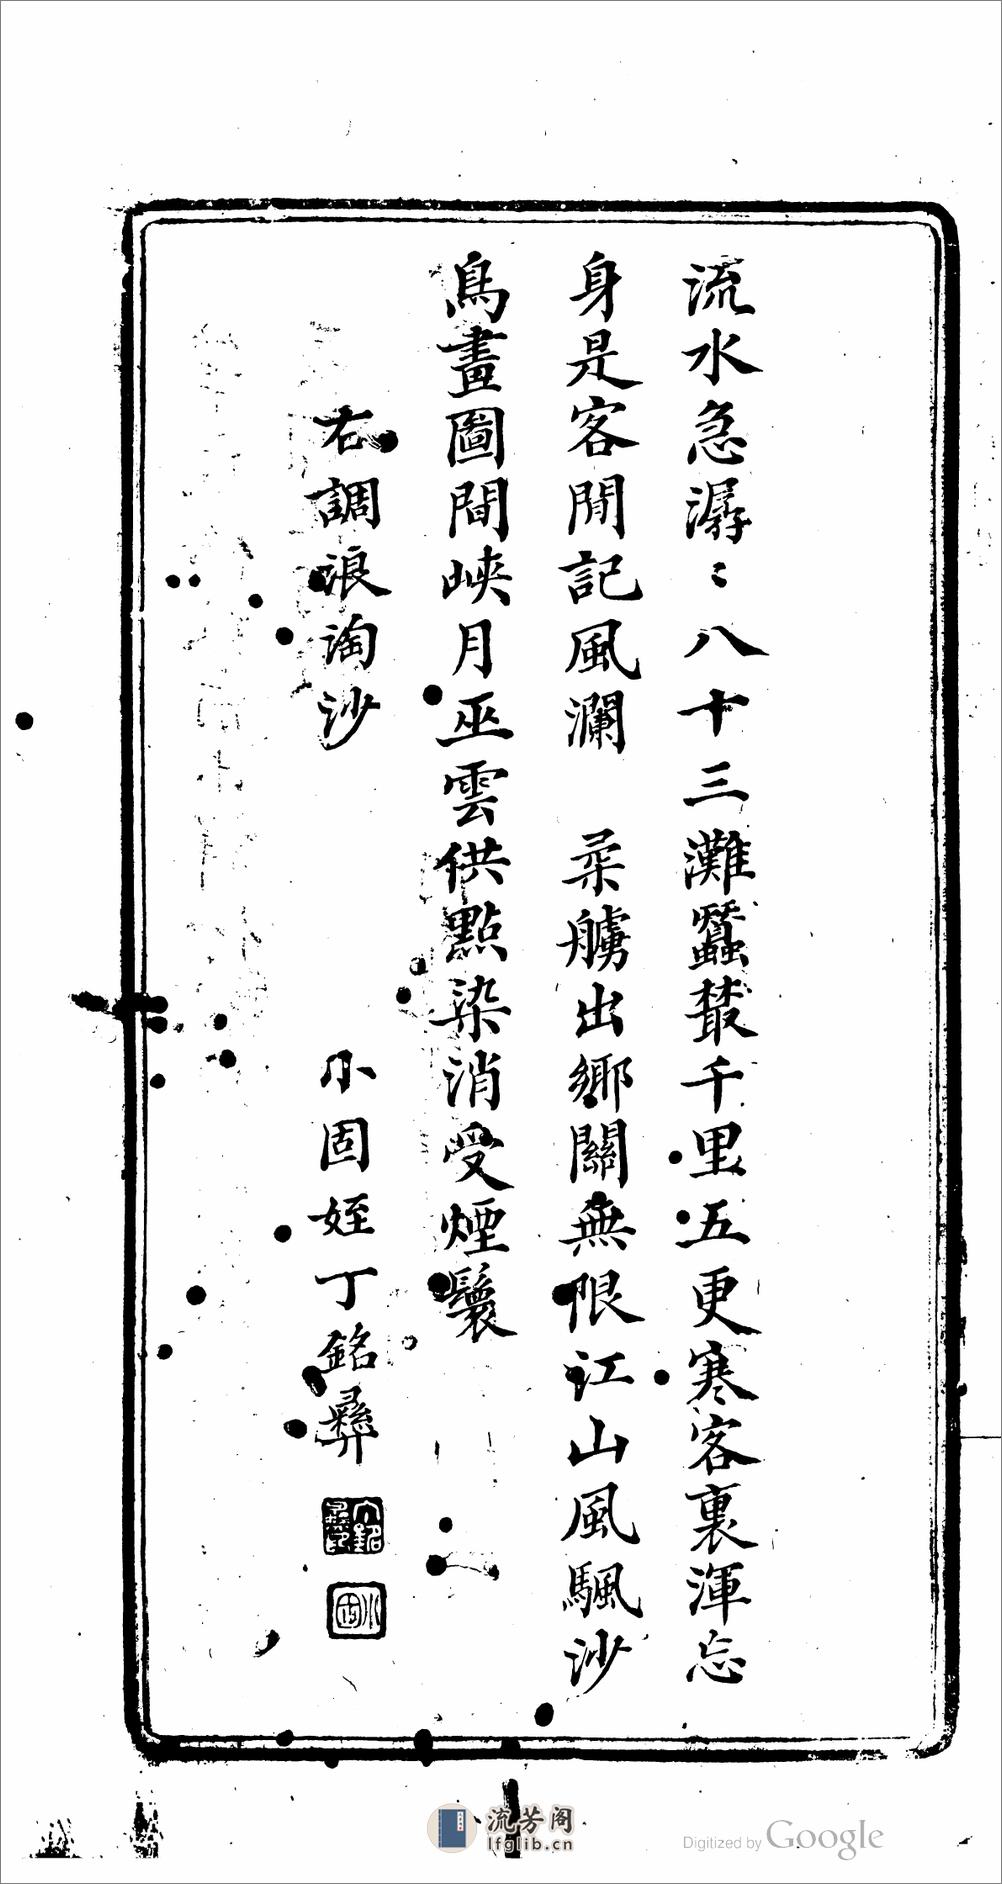 流水急潺〻八十三灘蠶叢千里五更寒客裏渾忘
身是客閒記風瀾　柔艣出鄉關無限江山風颿沙
鳥畫圖間峽月巫雲供點染消受煙鬟
右調浪淘沙　小固姪丁銘彝
流芳阁
lfglib.cn
Digitized by Google